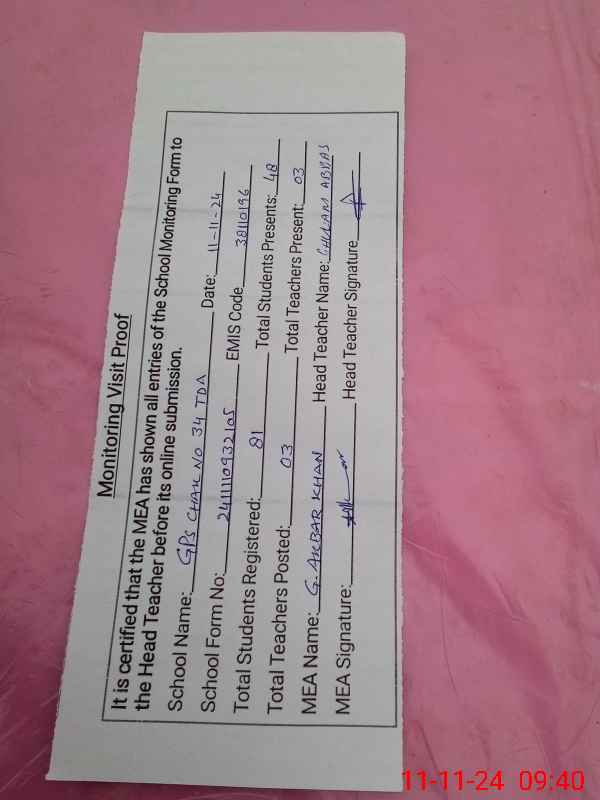 Monitoring Visit Proof
It is certified that the MEA has shown all entries of the School Monitoring Form to
the Head Teacher before its online submission.
School Name: GPS CHAK NO 34 TDA Date: 11-11-24
School Form No: 2411110932105 EMIS Code 38110196
Total Students Registered: 81 Total Students Presents: 48
Total Teachers Posted: 03 Total Teachers Present: 03
MEA Name: G. AKBAR KHAN Head Teacher Name: GHULAM ABBAS
MEA Signature: Head Teacher Signature
11-11-24 09:40